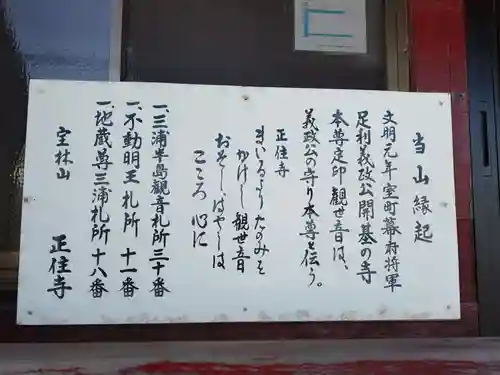 当山縁起
文明元年室町幕府将軍
足利義政公開基の寺
本尊定印観世音は、
義政公の守り本尊と伝う。
正住寺
まいるより たのみを
かけし 観世音
おそしはやしは
こころ 心に
一、三浦半島観音札所三十番
一、不動明王札所 十一番
一、地蔵尊三浦札所 十八番
宝林山 正住寺